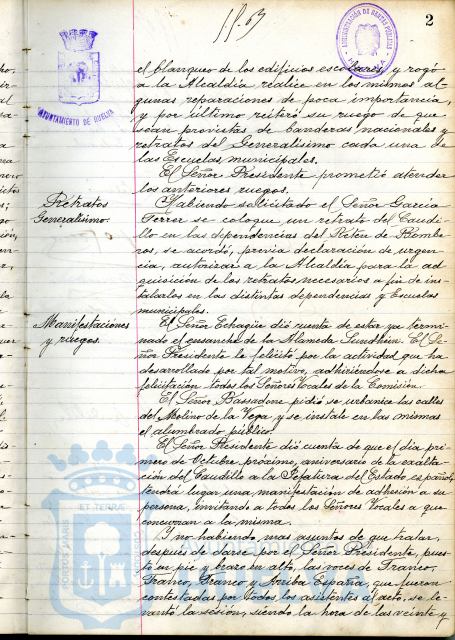 2
AYUNTAMIENTO DE HUELVA
el blanqueo de los edificios escolares, y rogó
a la Alcaldía realice en los mismos al-
gunas reparaciones de poca importancia,
y por último reiteró su ruego de que
sean provistas de banderas nacionales y
retratos del Generalísimo cada una de
las Escuelas municipales.
El Señor Presidente prometió atender
los anteriores ruegos.
Retratos
Generalísimo
Habiendo solicitado el Señor García
Ferrer se coloque un retrato del Caudi-
llo en las dependencias del Retén de Bombe-
ros, se acordó, previa declaración de urgen-
cia, autorizar a la Alcaldía para la ad-
quisición de los retratos necesarios a fin de ins-
talarlos en las distintas dependencias y Escuelas
municipales.
Manifestaciones
y ruegos.
El Señor Echagüe dió cuenta de estar ya termi-
nado el ensanche de la Alameda Sundheim. El Se-
ñor Presidente le felicitó por la actividad que ha
desarrollado por tal motivo, adhiriéndose a dicha
felicitación todos los Señores Vocales de la Comisión.
El Señor Bassadone pidió se urbanice las calles
del Molino de la Vega, y se instale en las mismas
el alumbrado público.
El Señor Presidente dió cuenta de que el día pri-
mero de Octubre próximo, aniversario de la exalta-
ción del Caudillo a la Jefatura del Estado español,
tendrá lugar una manifestación de adhesión a su
persona, invitando a todos los Señores Vocales a que
concurran a la misma.
Y no habiendo mas asuntos de que tratar,
después de darse por el Señor Presidente, pues-
to en pie y brazo en alto, las voces de Franco,
Franco, Franco y Arriba España, que fueron
contestadas por todos los asistentes al acto, se le-
vantó la sesión, siendo la hora de las veinte y